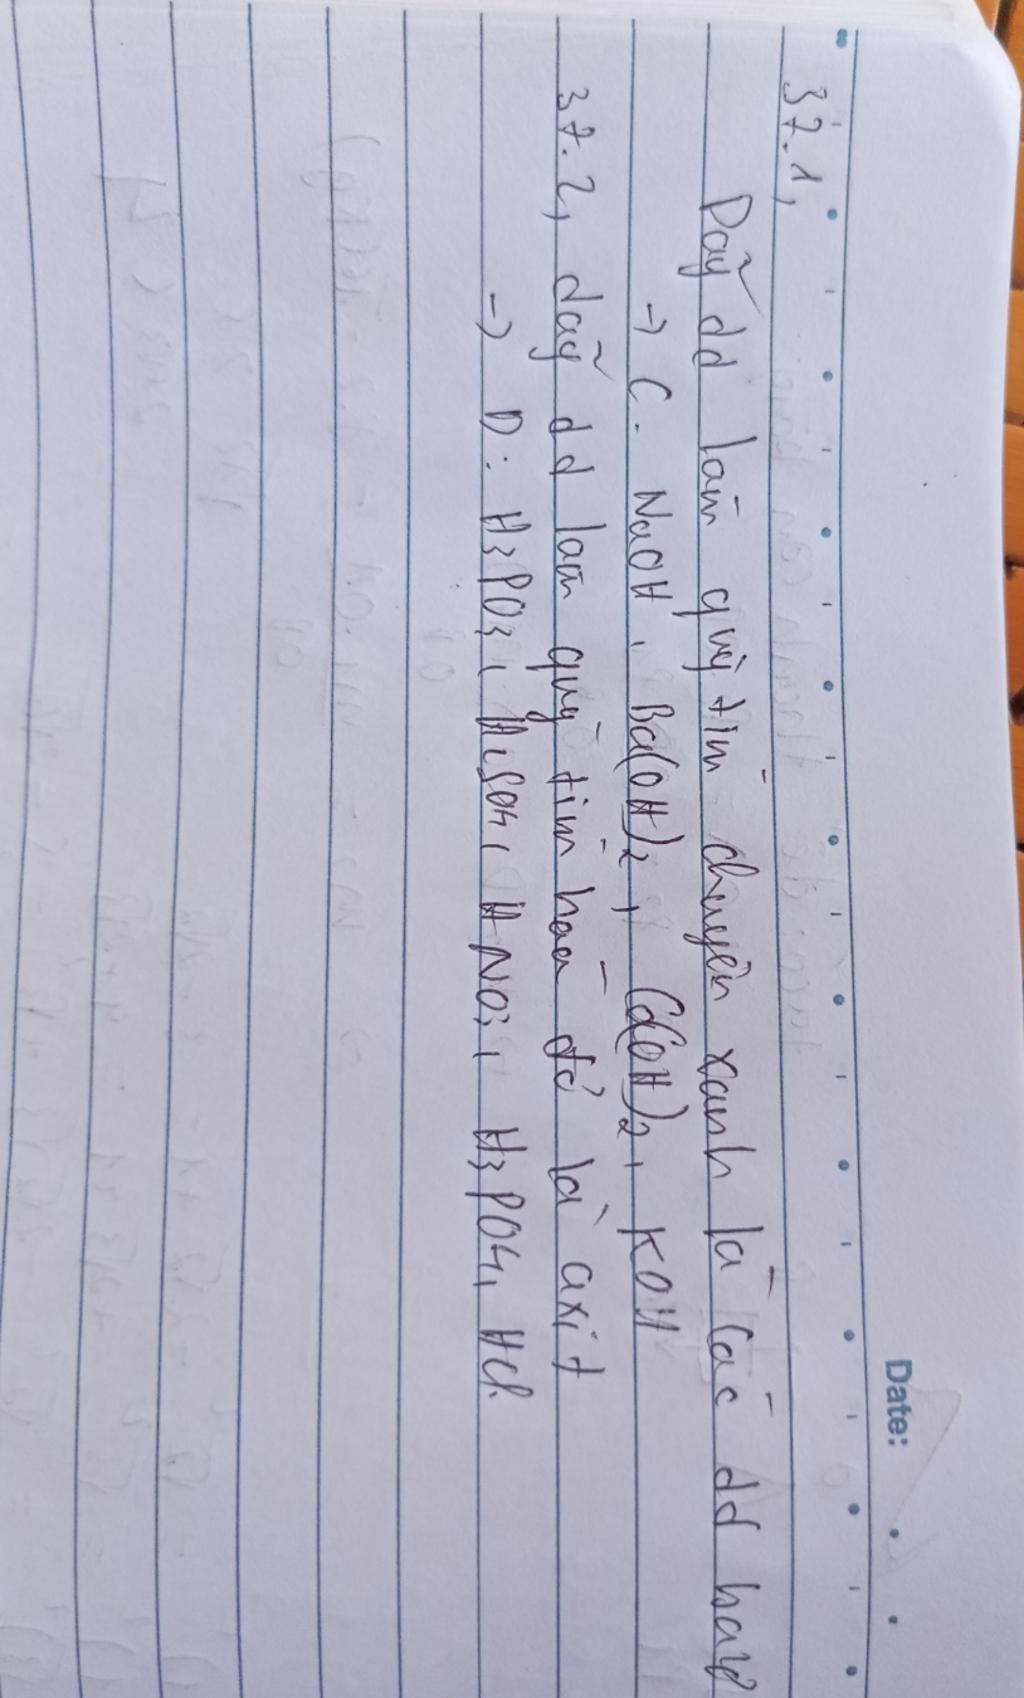 Date:
37.1,
Dãy dd làm quỳ tím chuyển xanh là các dd bazơ
→ C. NaOH, Ba(OH)2, Ca(OH)2, KOH
37.2, dãy dd làm quỳ tím hóa đỏ là axit
→ D: H3PO3, H2SO4, HNO3, H3PO4, HCl.